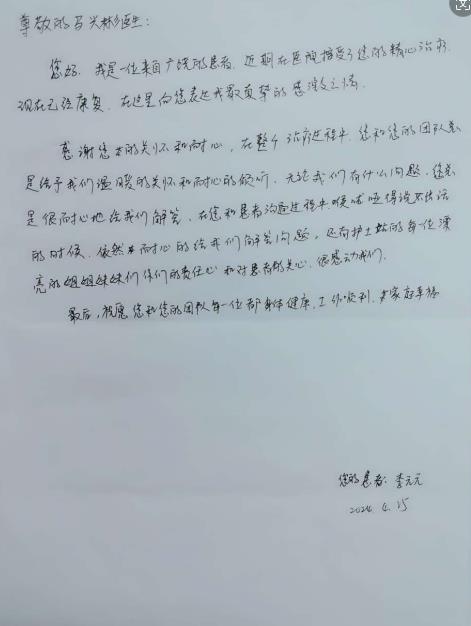 尊敬的马兴彬医生：
您好，我是一位来自广饶的患者，近期在医院接受了您的精心治疗，
现在已经康复，在这里向您表达我最真挚的感激之情。
感谢您的关怀和耐心，在整个治疗过程中，您和您的团队总
是给予我们温暖的关怀和耐心的倾听，无论我们有什么问题，您总
是很耐心地给我们解答，在您和患者沟通过程中喉咙哑得说不出话
的时候，依然耐心的给我们解答问题，还有护士站的每一位漂
亮的姐姐妹妹们你们的责任心和对患者的关心，很感动我们。
最后，祝愿您和您的团队每一位都身体健康，工作顺利，家庭幸福
您的患者：李元元
2024.4.15